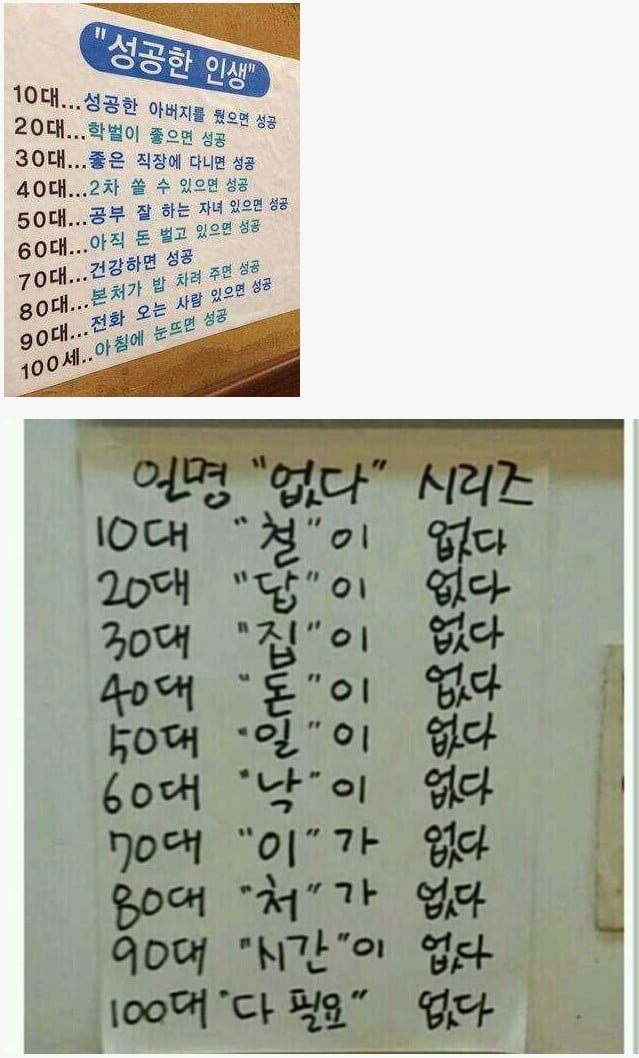 "성공한 인생"
10대...성공한 아버지를 뒀으면 성공
20대...학벌이 좋으면 성공
30대...좋은 직장에 다니면 성공
40대...2차 쏠 수 있으면 성공
50대...공부 잘 하는 자녀 있으면 성공
60대...아직 돈 벌고 있으면 성공
70대...건강하면 성공
80대...본처가 밥 차려 주면 성공
90대...전화 오는 사람 있으면 성공
100세..아침에 눈뜨면 성공
일명 "없다" 시리즈
10대 "철"이 없다
20대 "답"이 없다
30대 "집"이 없다
40대 "돈"이 없다
50대 "일"이 없다
60대 "낙"이 없다
70대 "이"가 없다
80대 "처"가 없다
90대 "시간"이 없다
100대 "다 필요" 없다